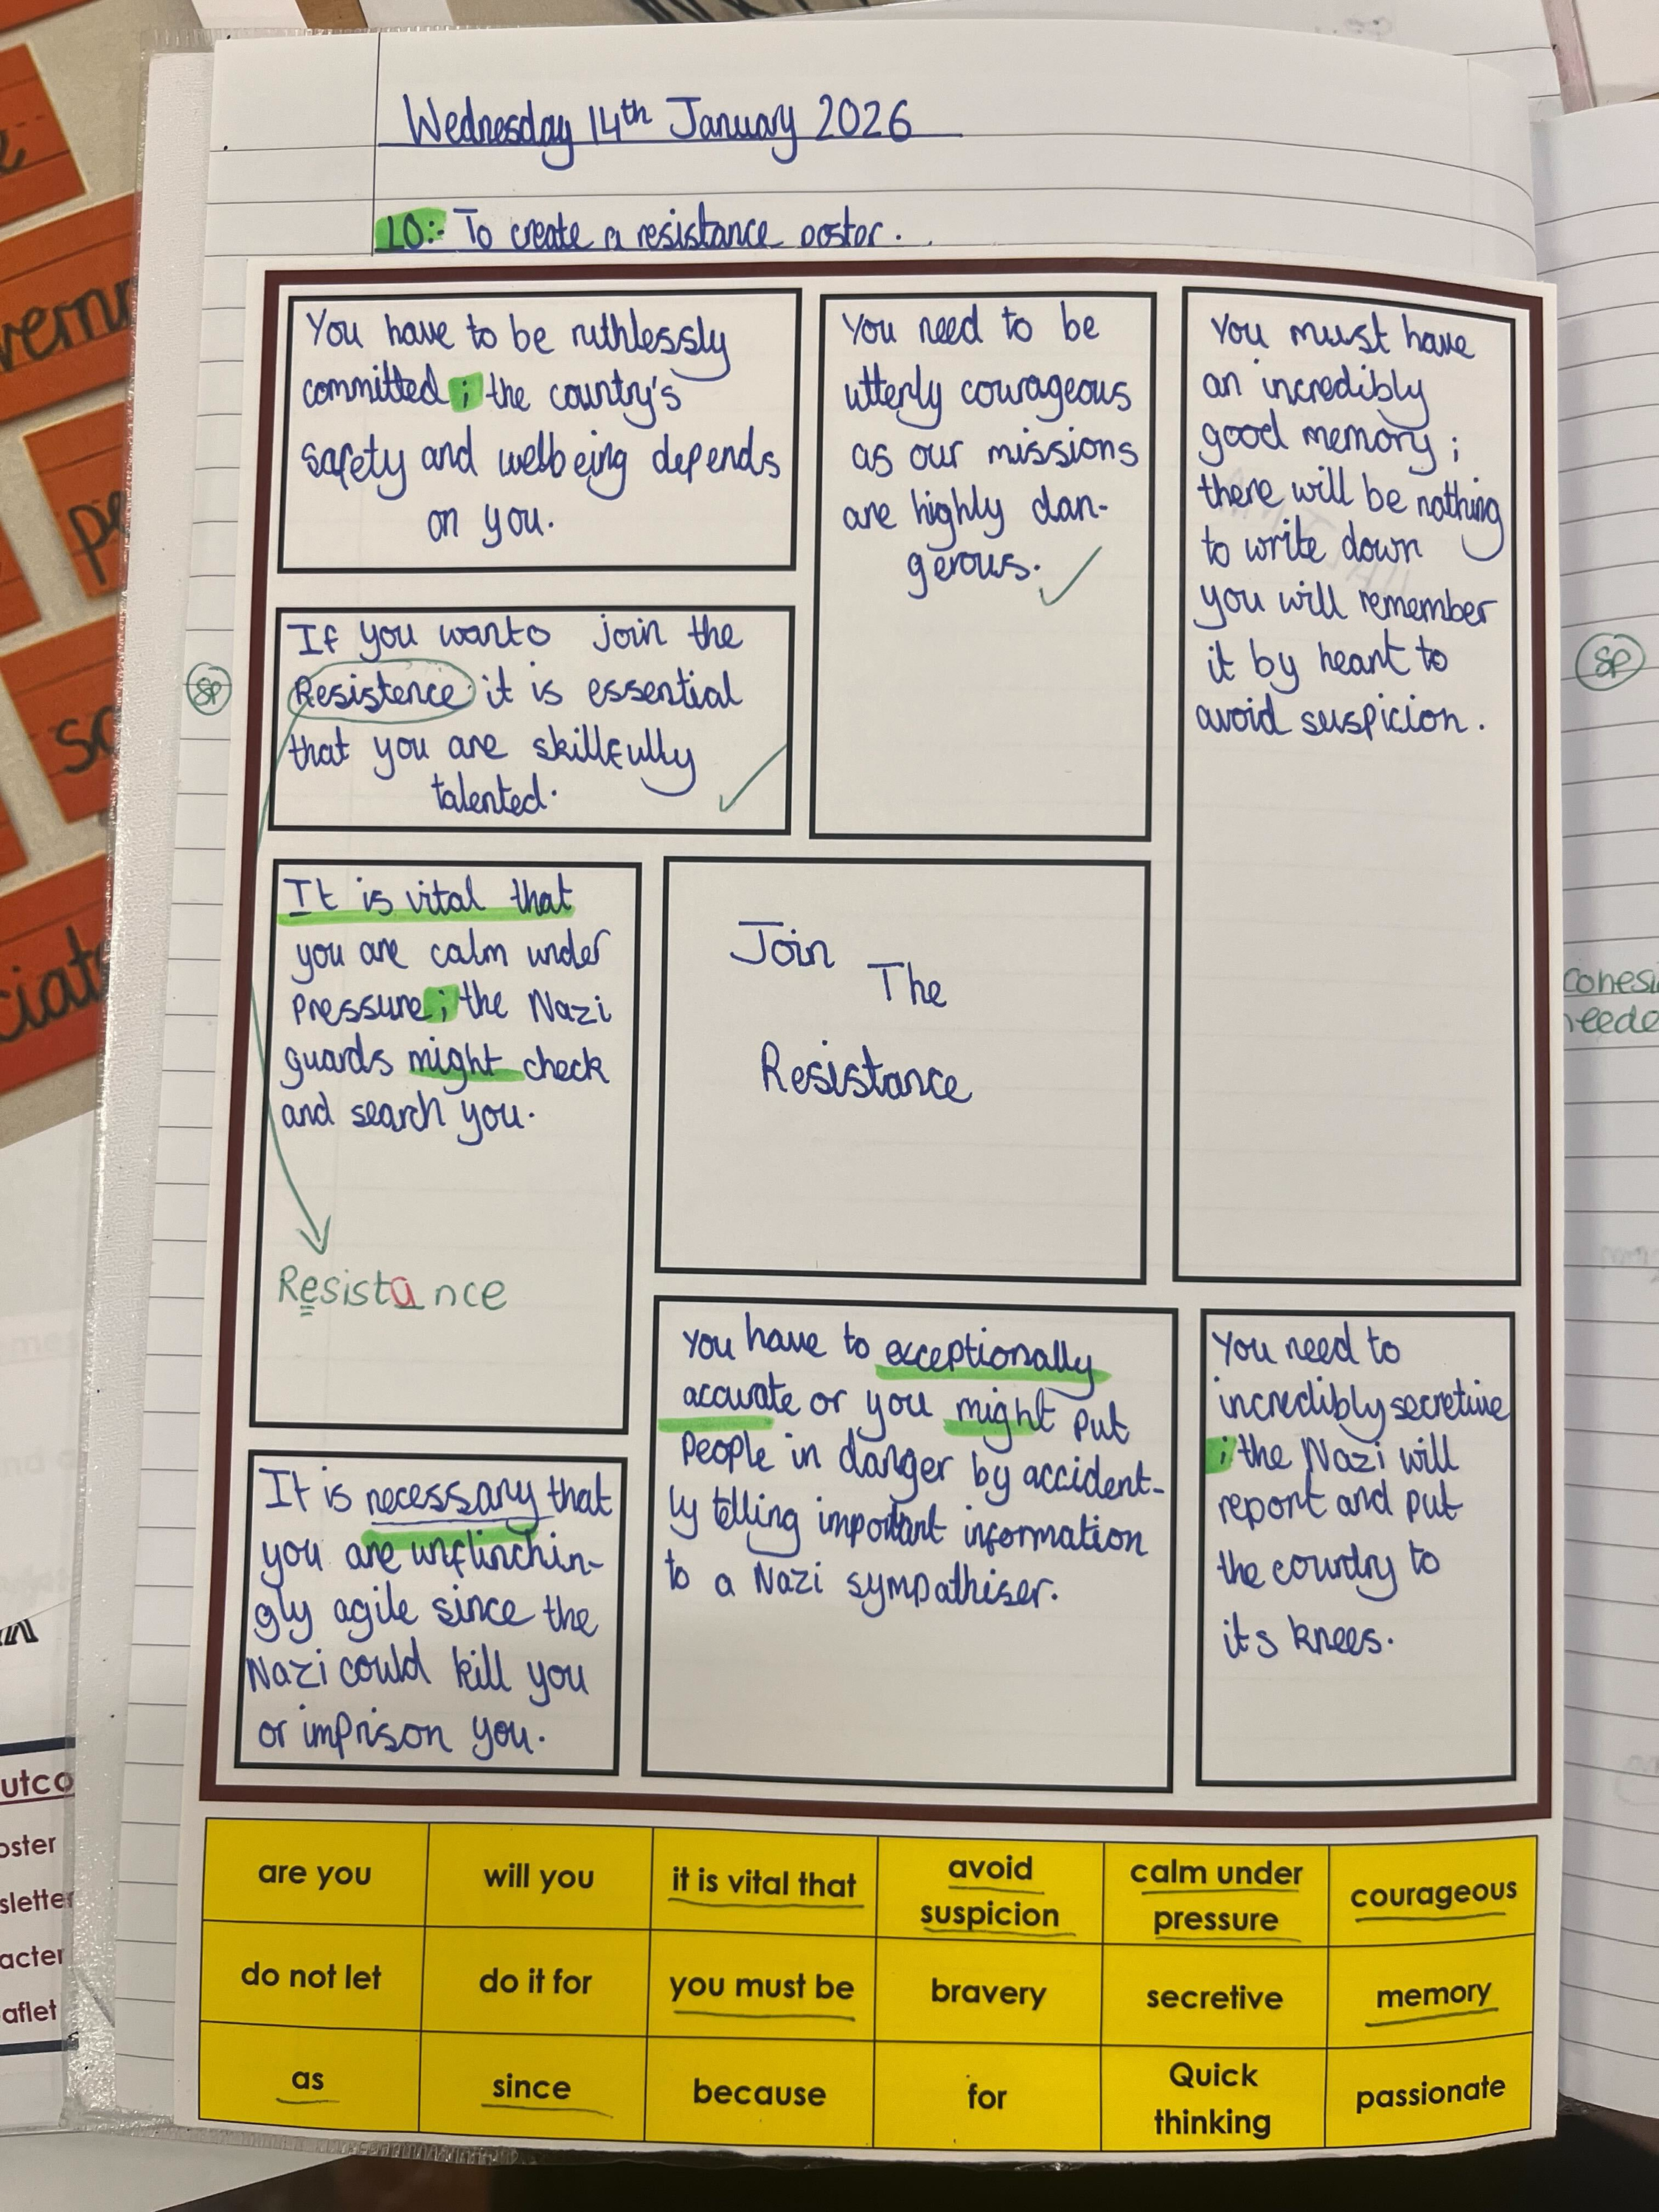 Wednesday 14th January 2026
LO:- To create a resistance poster.
You have to be ruthlessly
committed ; the country's
safety and wellbeing depends
on you.
You need to be
utterly courageous
as our missions
are highly dan-
gerous.
You must have
an incredibly
good memory ;
there will be nothing
to write down
you will remember
it by heart to
avoid suspicion.
SP
If you wanto join the
Resistence it is essential
that you are skillfully
talented.
SP
It is vital that
you are calm under
pressure ; the Nazi
guards might check
and search you.
Resistance
Join The
Resistance
You have to exceptionally
accurate or you might put
people in danger by accident-
ly telling important information
to a Nazi sympathiser.
You need to
incredibly secretive
; the Nazi will
report and put
the country to
its knees.
It is necessary that
you are unflinchin-
gly agile since the
Nazi could kill you
or imprison you.
are you
will you
it is vital that
avoid
suspicion
calm under
pressure
courageous
do not let
do it for
you must be
bravery
secretive
memory
as
since
because
for
Quick
thinking
passionate